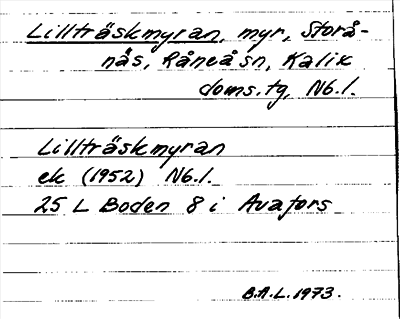 Lillträskmyran, myr, Storå-
näs, Råneå sn, Kalix
doms.tg, Nb.l.
Lillträskmyran
ek (1952) Nb.l.
25 L Boden 8 i Avafors
B.A.L. 1973.